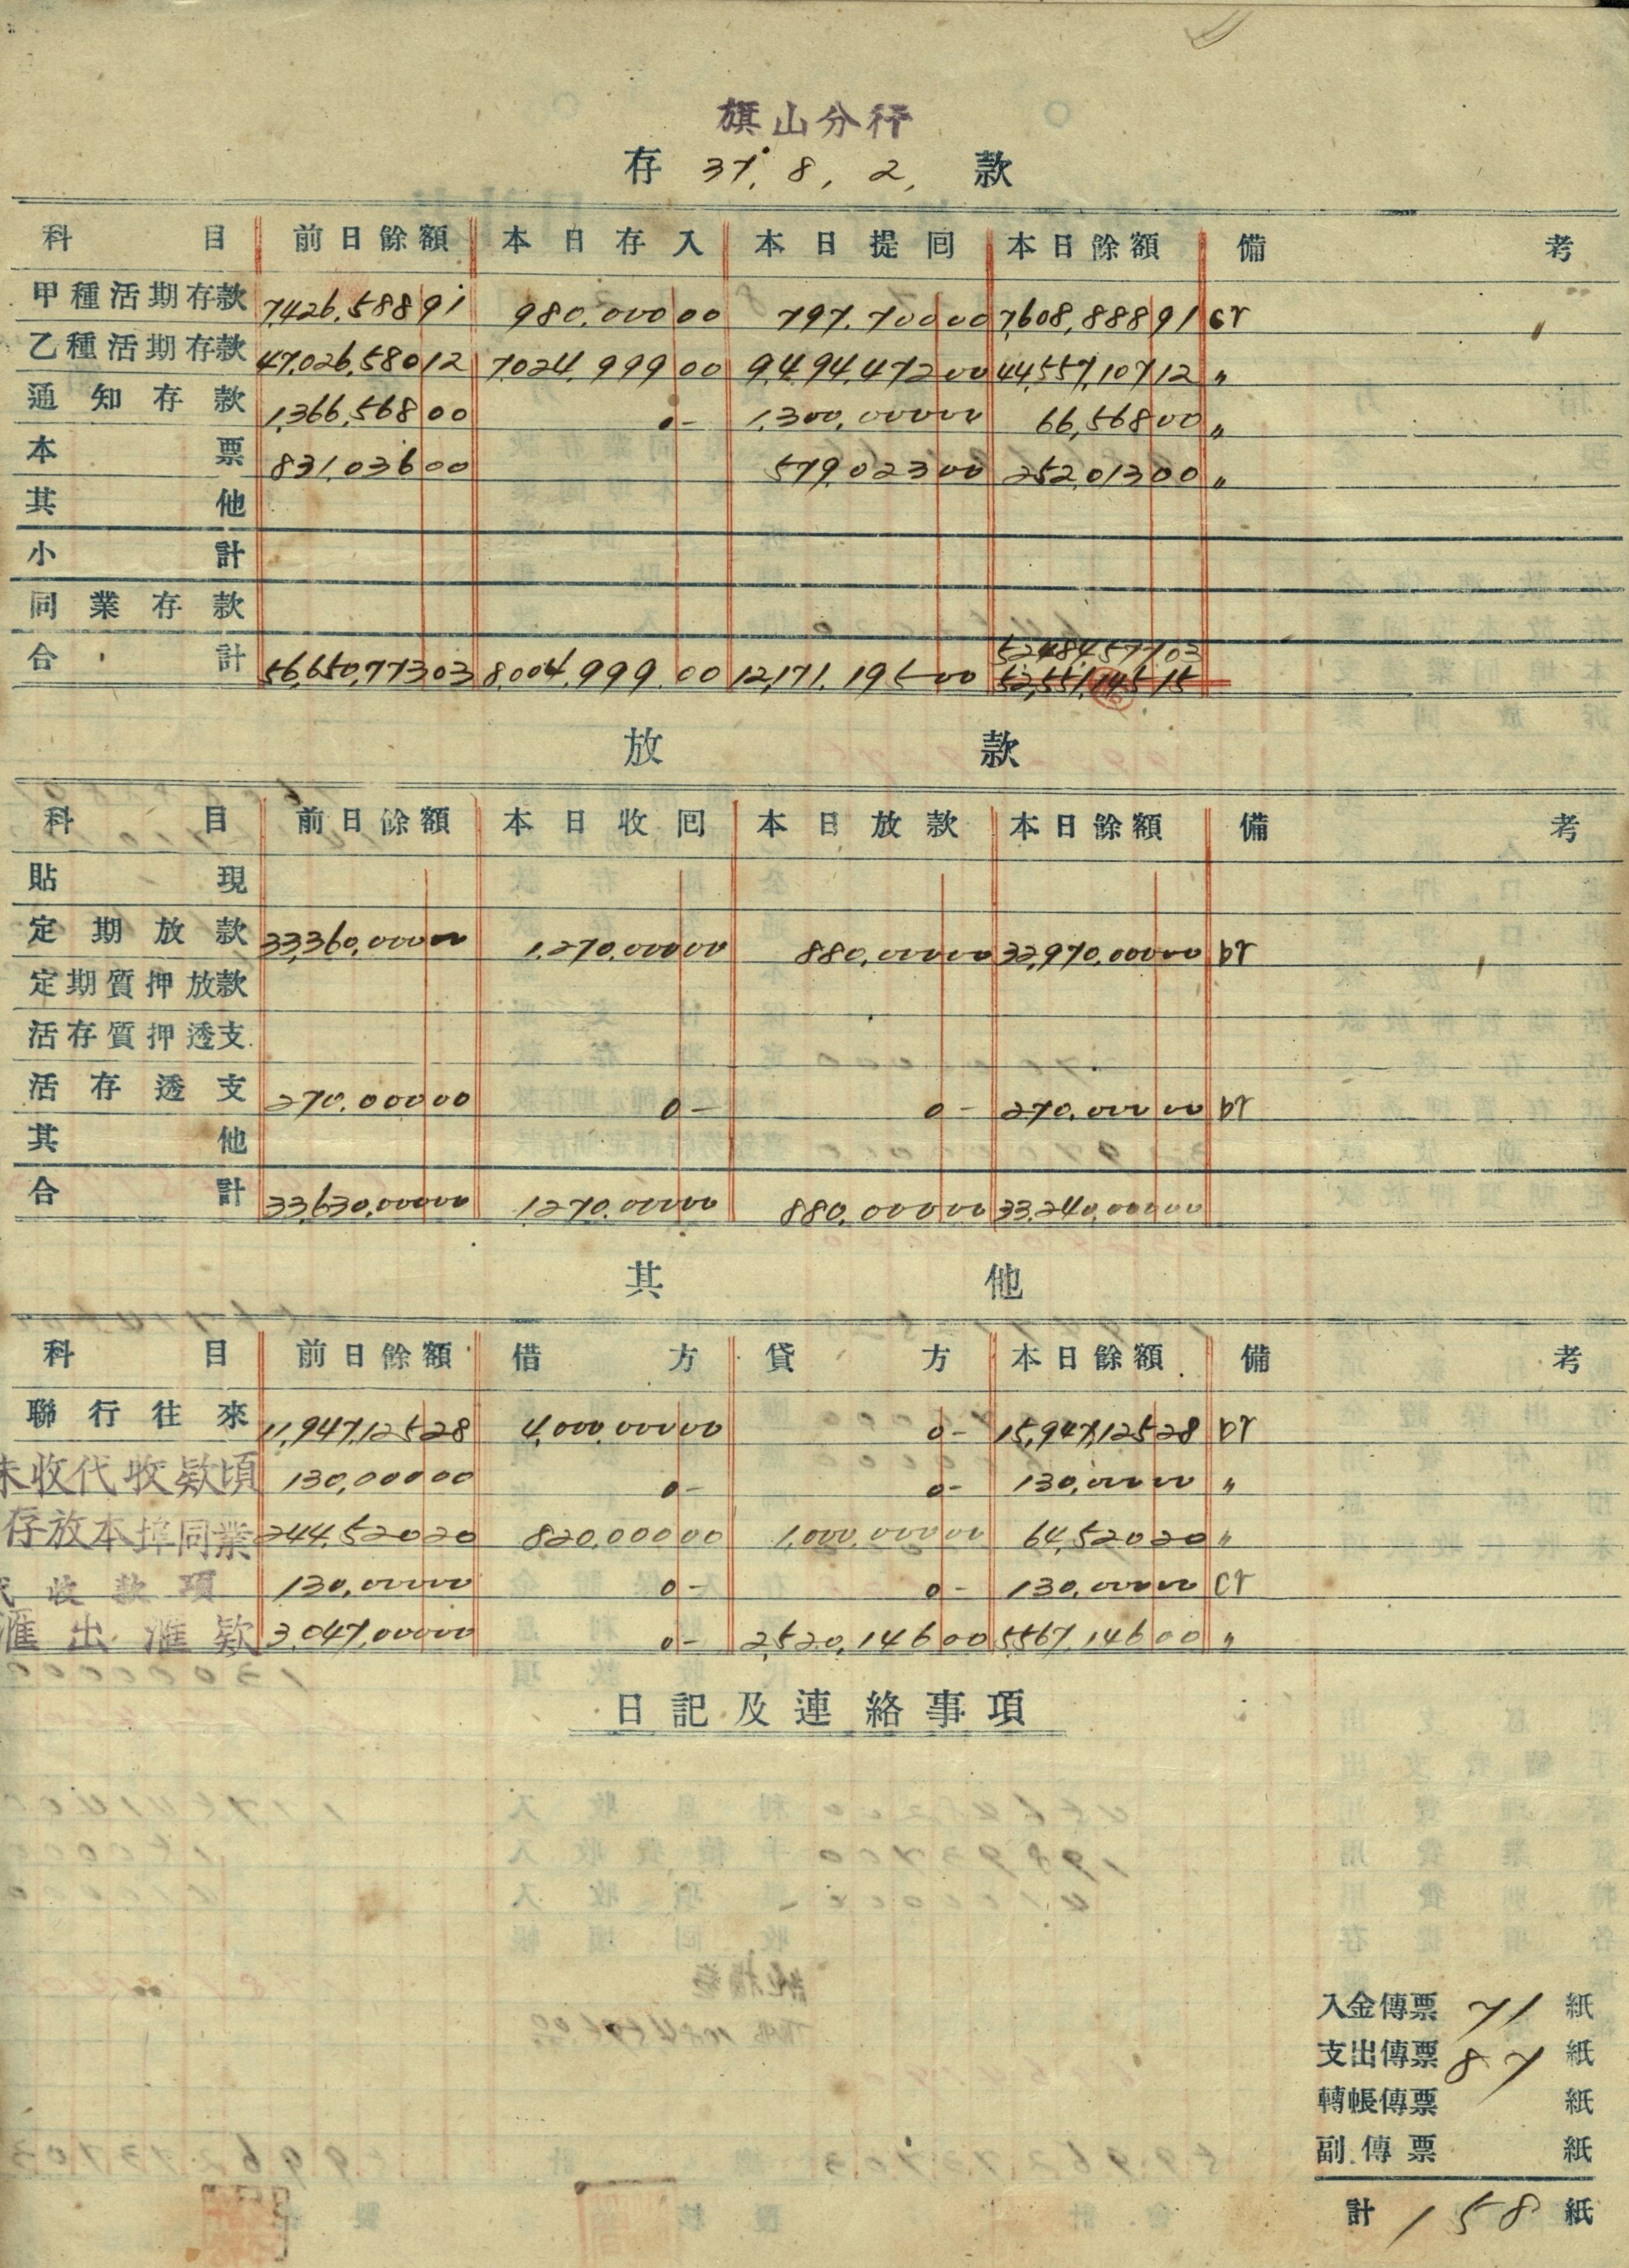 旗山分行
存 37. 8. 2. 款
科目 前日餘額 本日存入 本日提囘 本日餘額 備考
甲種活期存款 7,426,588 91 980,000 00 797,700 00 7,608,888 91 cr
乙種活期存款 47,026,580 12 7,024,999 00 9,494,472 00 44,557,107 12 〃
通知存款 1,366,568 00 0- 1,300,000 00 66,568 00 〃
本票 831,036 00 579,023 00 252,013 00 〃
其他
小計
同業存款
52,484,577 03
合計 56,650,773 03 8,004,999 00 12,171,195 00 52,551,145 15
放款
科目 前日餘額 本日收囘 本日放款 本日餘額 備考
貼現
定期放款 33,360,000 00 1,270,000 00 880,000 00 32,970,000 00 Dr
定期質押放款
活存質押透支
活存透支 270,000 00 0- 0- 270,000 00 Dr
其他
合計 33,630,000 00 1,270,000 00 880,000 00 33,240,000 00
其他
科目 前日餘額 借方 貸方 本日餘額 備考
聯行往來 11,947,125 28 4,000,000 00 0- 15,947,125 28 Dr
未收代收欵項 130,000 00 0- 0- 130,000 00 〃
存放本埠同業 244,520 20 820,000 00 1,000,000 00 64,520 20 〃
代收款項 130,000 00 0- 0- 130,000 00 Cr
滙出滙欵 3,047,000 00 0- 2,520,146 00 5,567,146 00 〃
日記及連絡事項
入金傳票 71 紙
支出傳票 87 紙
轉帳傳票 紙
副傳票 紙
計 158 紙